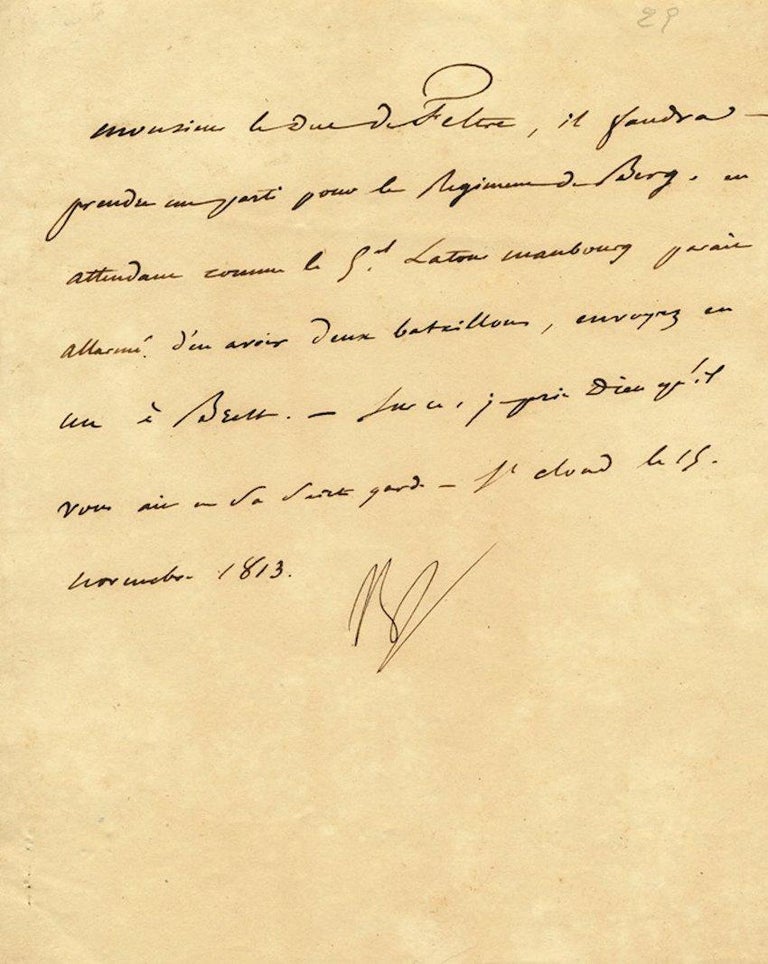 29
Monsieur le Duc de Feltre, il faudra
prendre un parti pour le Régiment de Berg. en
attendant comme le G.al Latour maubourg parait
allarmé d'en avoir deux bataillons, envoyez en
un à Brest. — Sur ce, je prie Dieu qu'il
vous ait en sa sainte garde — St cloud le 15.
novembre 1813.